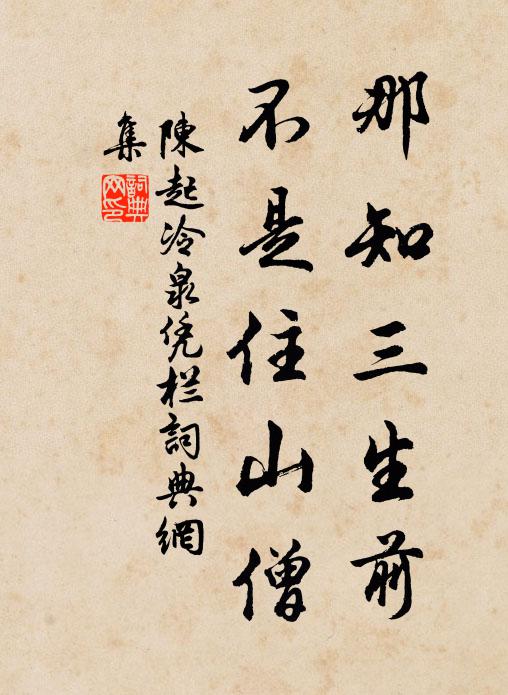 那知三生前
不是住山僧
陳起冷泉凭栏詞典網
集
詞典網印